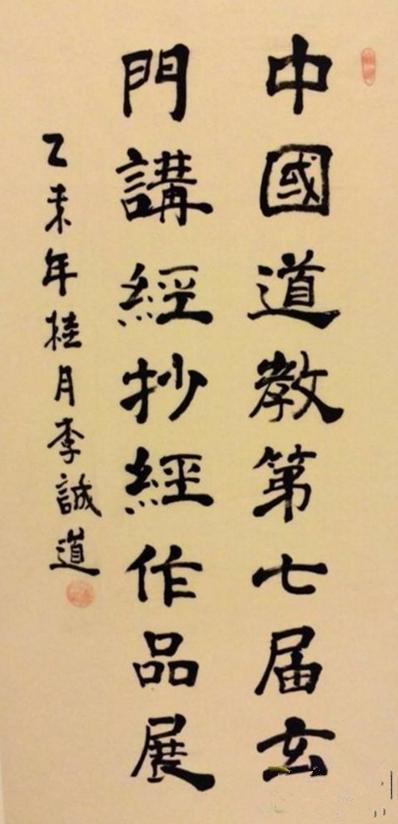 中國道教第七届玄
門講經抄經作品展
乙未年桂月李誠道